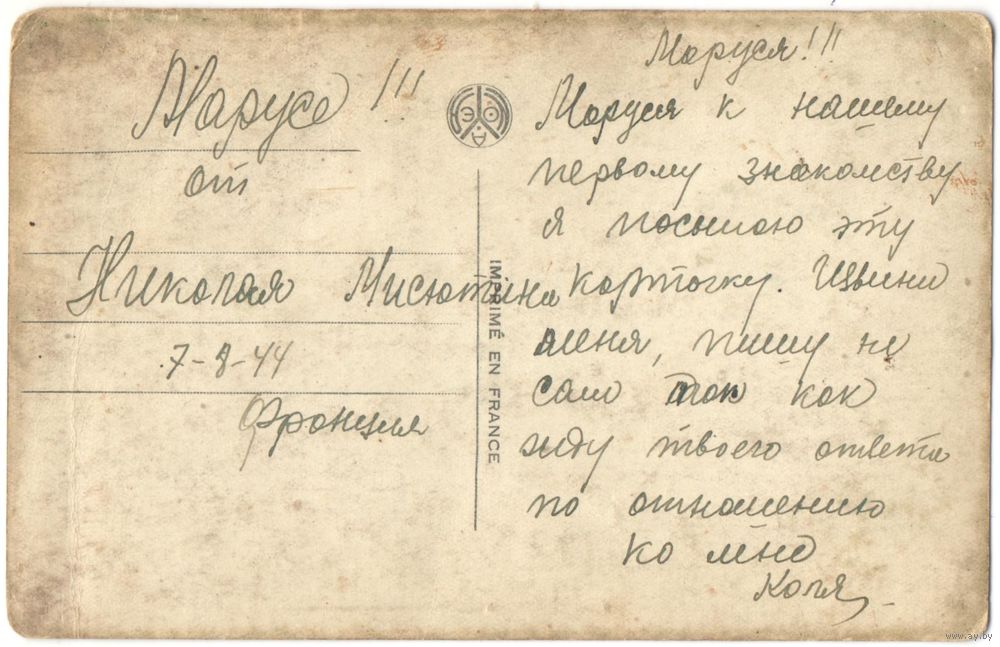 Марусе!!!
от
Николая Мисютина
7-8-44
Франция
IMPRIMÉ EN FRANCE
Маруся!!!
Маруся к нашему
первому знакомству
я посылаю эту
карточку. Извини
меня, пишу не
сам так как
жду твоего ответа
по отношению
ко мне
Коля
www.ay.by